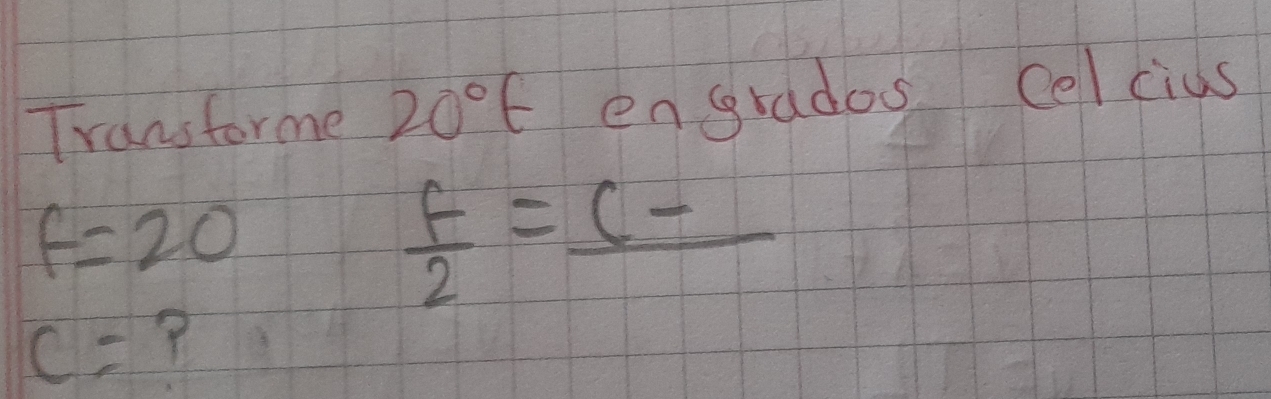 Transforme 20°f en grados Celcius
f=20 f/2 = C-
C=?